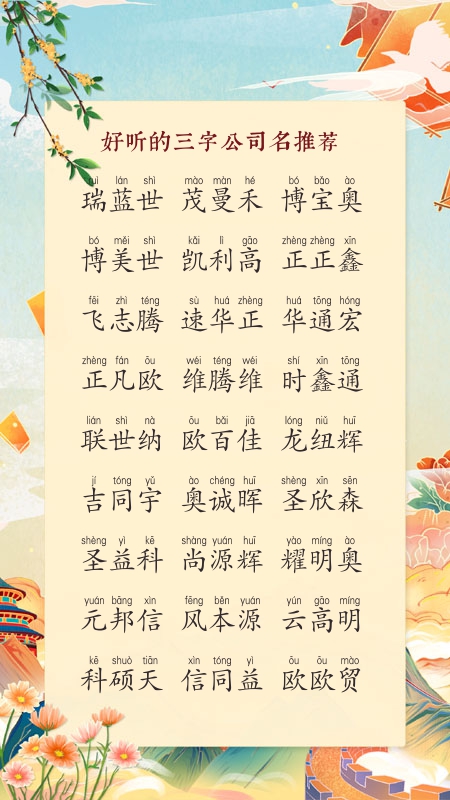 好听的三字公司名推荐
ruì lán shì mào màn hé bó bǎo ào
瑞蓝世 茂曼禾 博宝奥
bó měi shì kǎi lì gāo zhèng zhèng xīn
博美世 凯利高 正正鑫
fēi zhì téng sù huá zhèng huá tōng hóng
飞志腾 速华正 华通宏
zhèng fán ōu wéi téng wéi shí xīn tōng
正凡欧 维腾维 时鑫通
lián shì nà ōu bǎi jiā lóng niǔ huī
联世纳 欧百佳 龙纽辉
jí tóng yǔ ào chéng huī shèng xīn sēn
吉同宇 奥诚晖 圣欣森
shèng yì kē shàng yuán huī yào míng ào
圣益科 尚源辉 耀明奥
yuán bāng xìn fēng běn yuán yún gāo míng
元邦信 风本源 云高明
kē shuò tiān xìn tóng yì ōu ōu mào
科硕天 信同益 欧欧贸